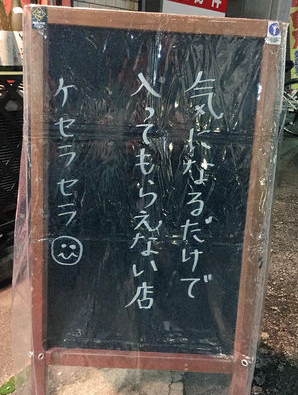 気になるだけで
入ってもらえない店
ケセラセラ